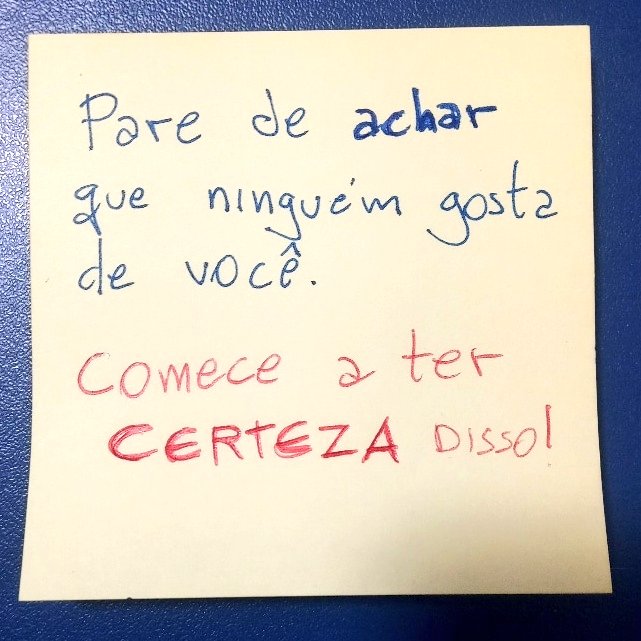 Pare de achar
que ninguém gosta
de você.
Comece a ter
CERTEZA DISSO!